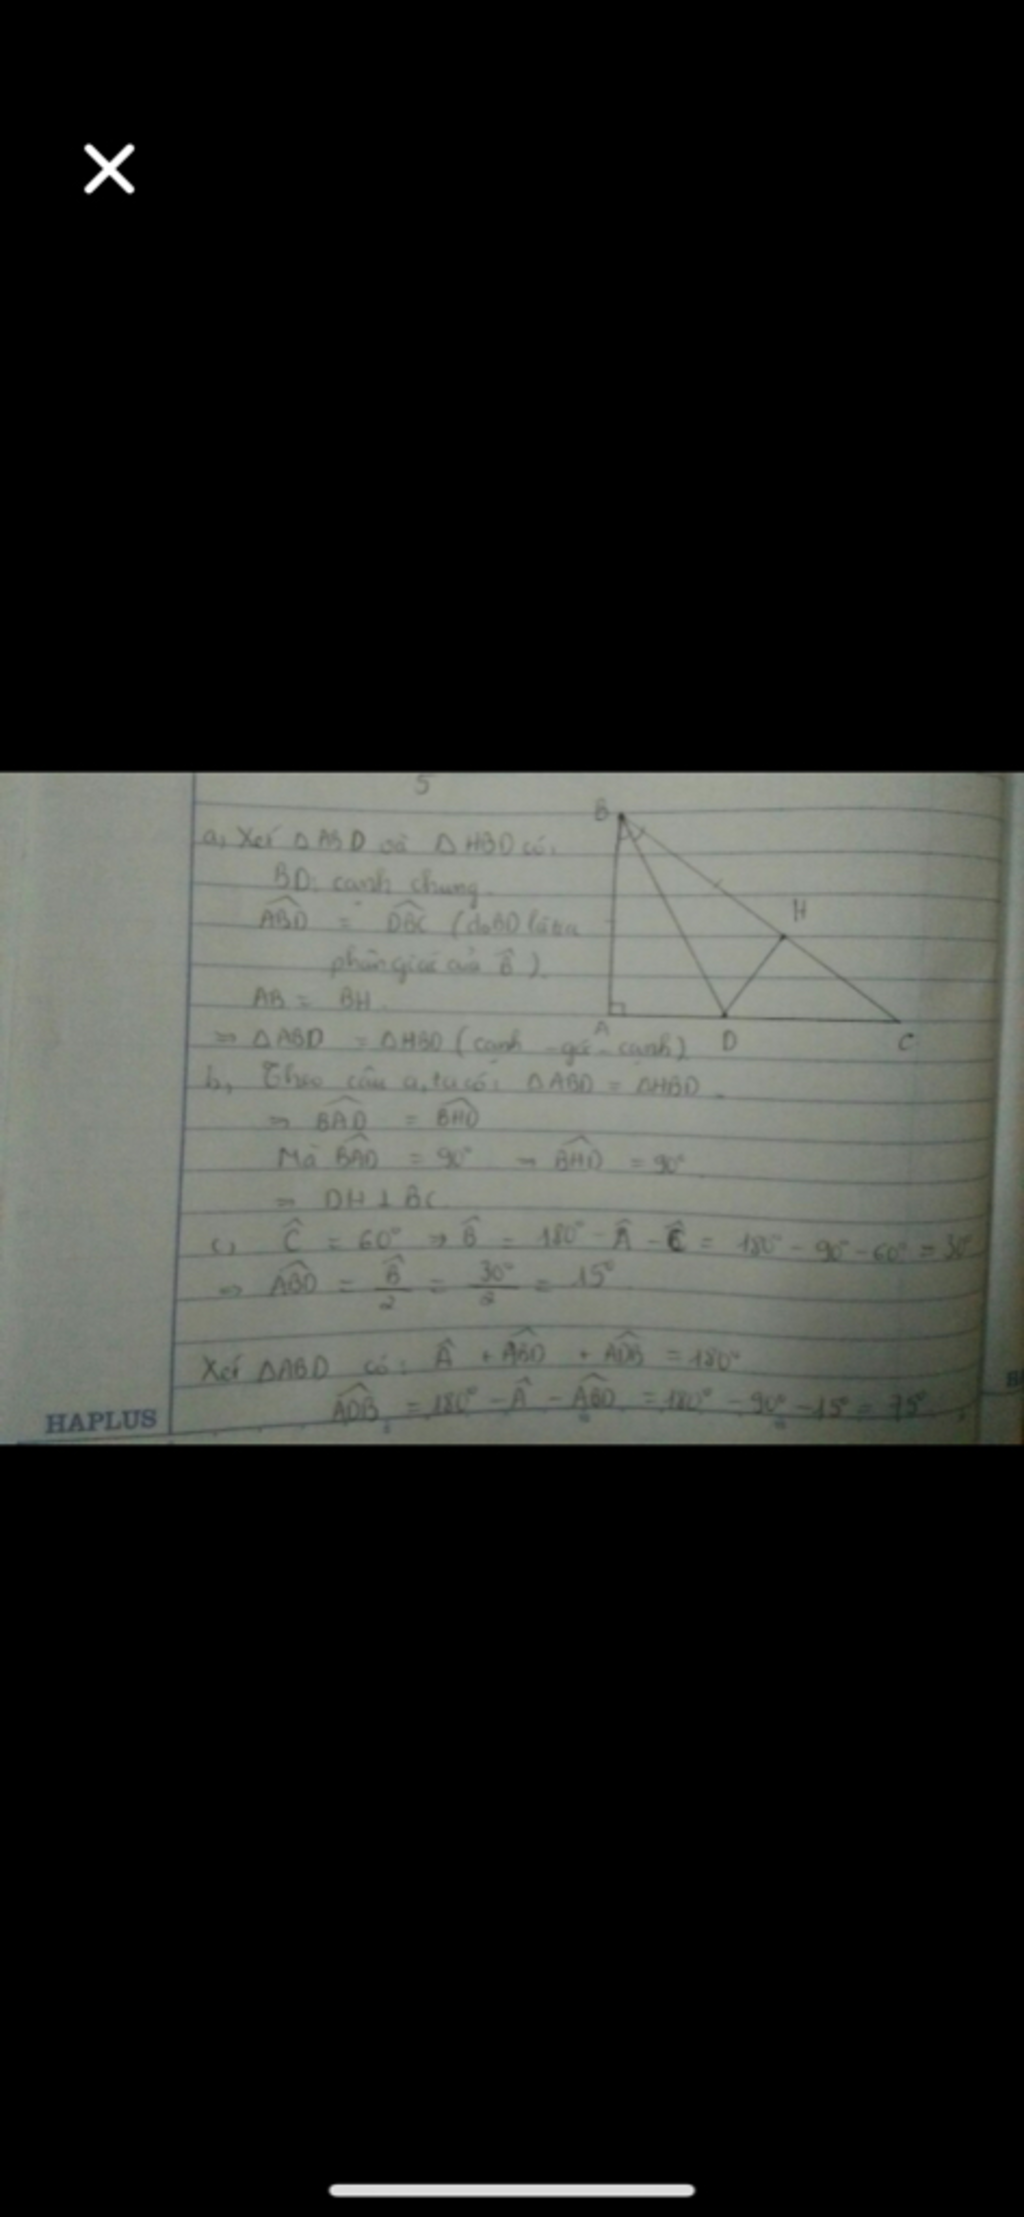 5
a, Xét ΔABD và ΔHBD có:
BD: cạnh chung
ABD̂ = DBĈ (do BD là tia
phân giác của B̂).
AB = BH.
⇒ ΔABD = ΔHBD (cạnh - góc - cạnh)
b, Theo câu a, ta có: ΔABD = ΔHBD.
⇒ BAD̂ = BHD̂
Mà BAD̂ = 90° → BHD̂ = 90°
⇒ DH ⊥ BC
c, Ĉ = 60° → B̂ = 180° - Â - Ĉ = 180° - 90° - 60° = 30°
⇒ ABD̂ = B̂/2 = 30°/2 = 15°
Xét ΔABD có: Â + ABD̂ + ADB̂ = 180°
ADB̂ = 180° - Â - ABD̂ = 180° - 90° - 15° = 75°.
B
H
A
D
C
HAPLUS